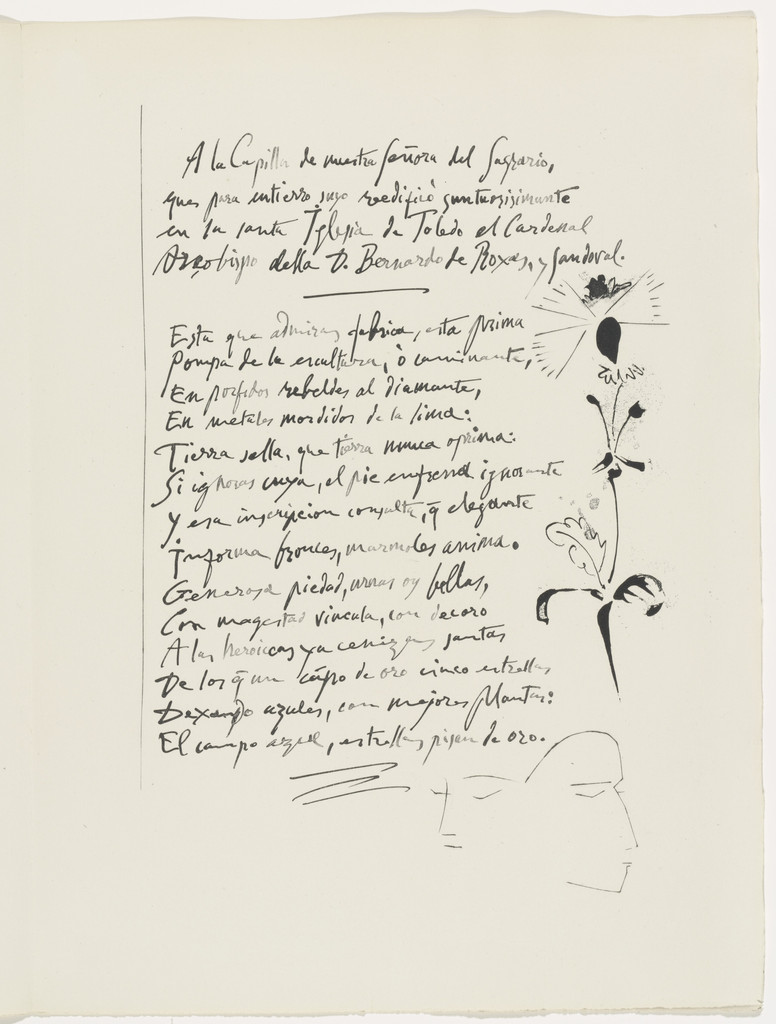 A la Capilla de nuestra Señora del Sagrario,
que para entierro suyo reedificò suntuosisimante
en la santa Iglesia de Toledo el Cardenal
Arçobispo della D. Bernardo de Roxas, y Sandoval.
Esta que admiras fabrica, esta prima
Pompa de la escultura, ò caminante,
En porfidos rebeldes al diamante,
En metales mordidos de la lima:
Tierra sella, que tierra nunca oprima:
Si ignoras cuya, el pie enfrena ignorante
Y esa inscripcion consulta, q̃ elegante
Informa bronces, marmoles anima.
Generosa piedad, urnas oy bellas,
Con magestad vincula, con decoro
A las heroicas ya cenizas santas
De los q̃ un campo de oro cinco estrellas
Dexando azules, con mejores plantas:
El campo azul, estrellas pisan de oro.